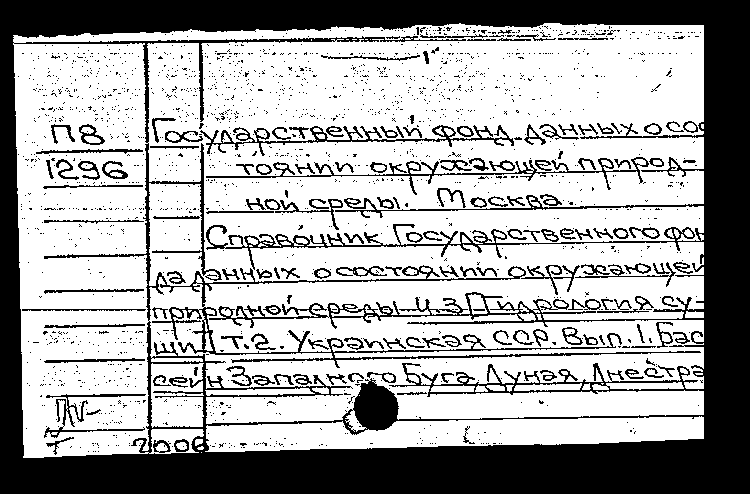 П8 Государственный фонд данных о сос
1296 тоянии окружающей природ-
ной среды. Москва.
Справочник Государственного фон
да данных о состоянии окружающей
природной среды. Ч.3 [Гидрология су-
ши] Т.2. Украинская ССР. Вып. 1. Бас
сейн Западного Буга, Дуная, Днестра
2006